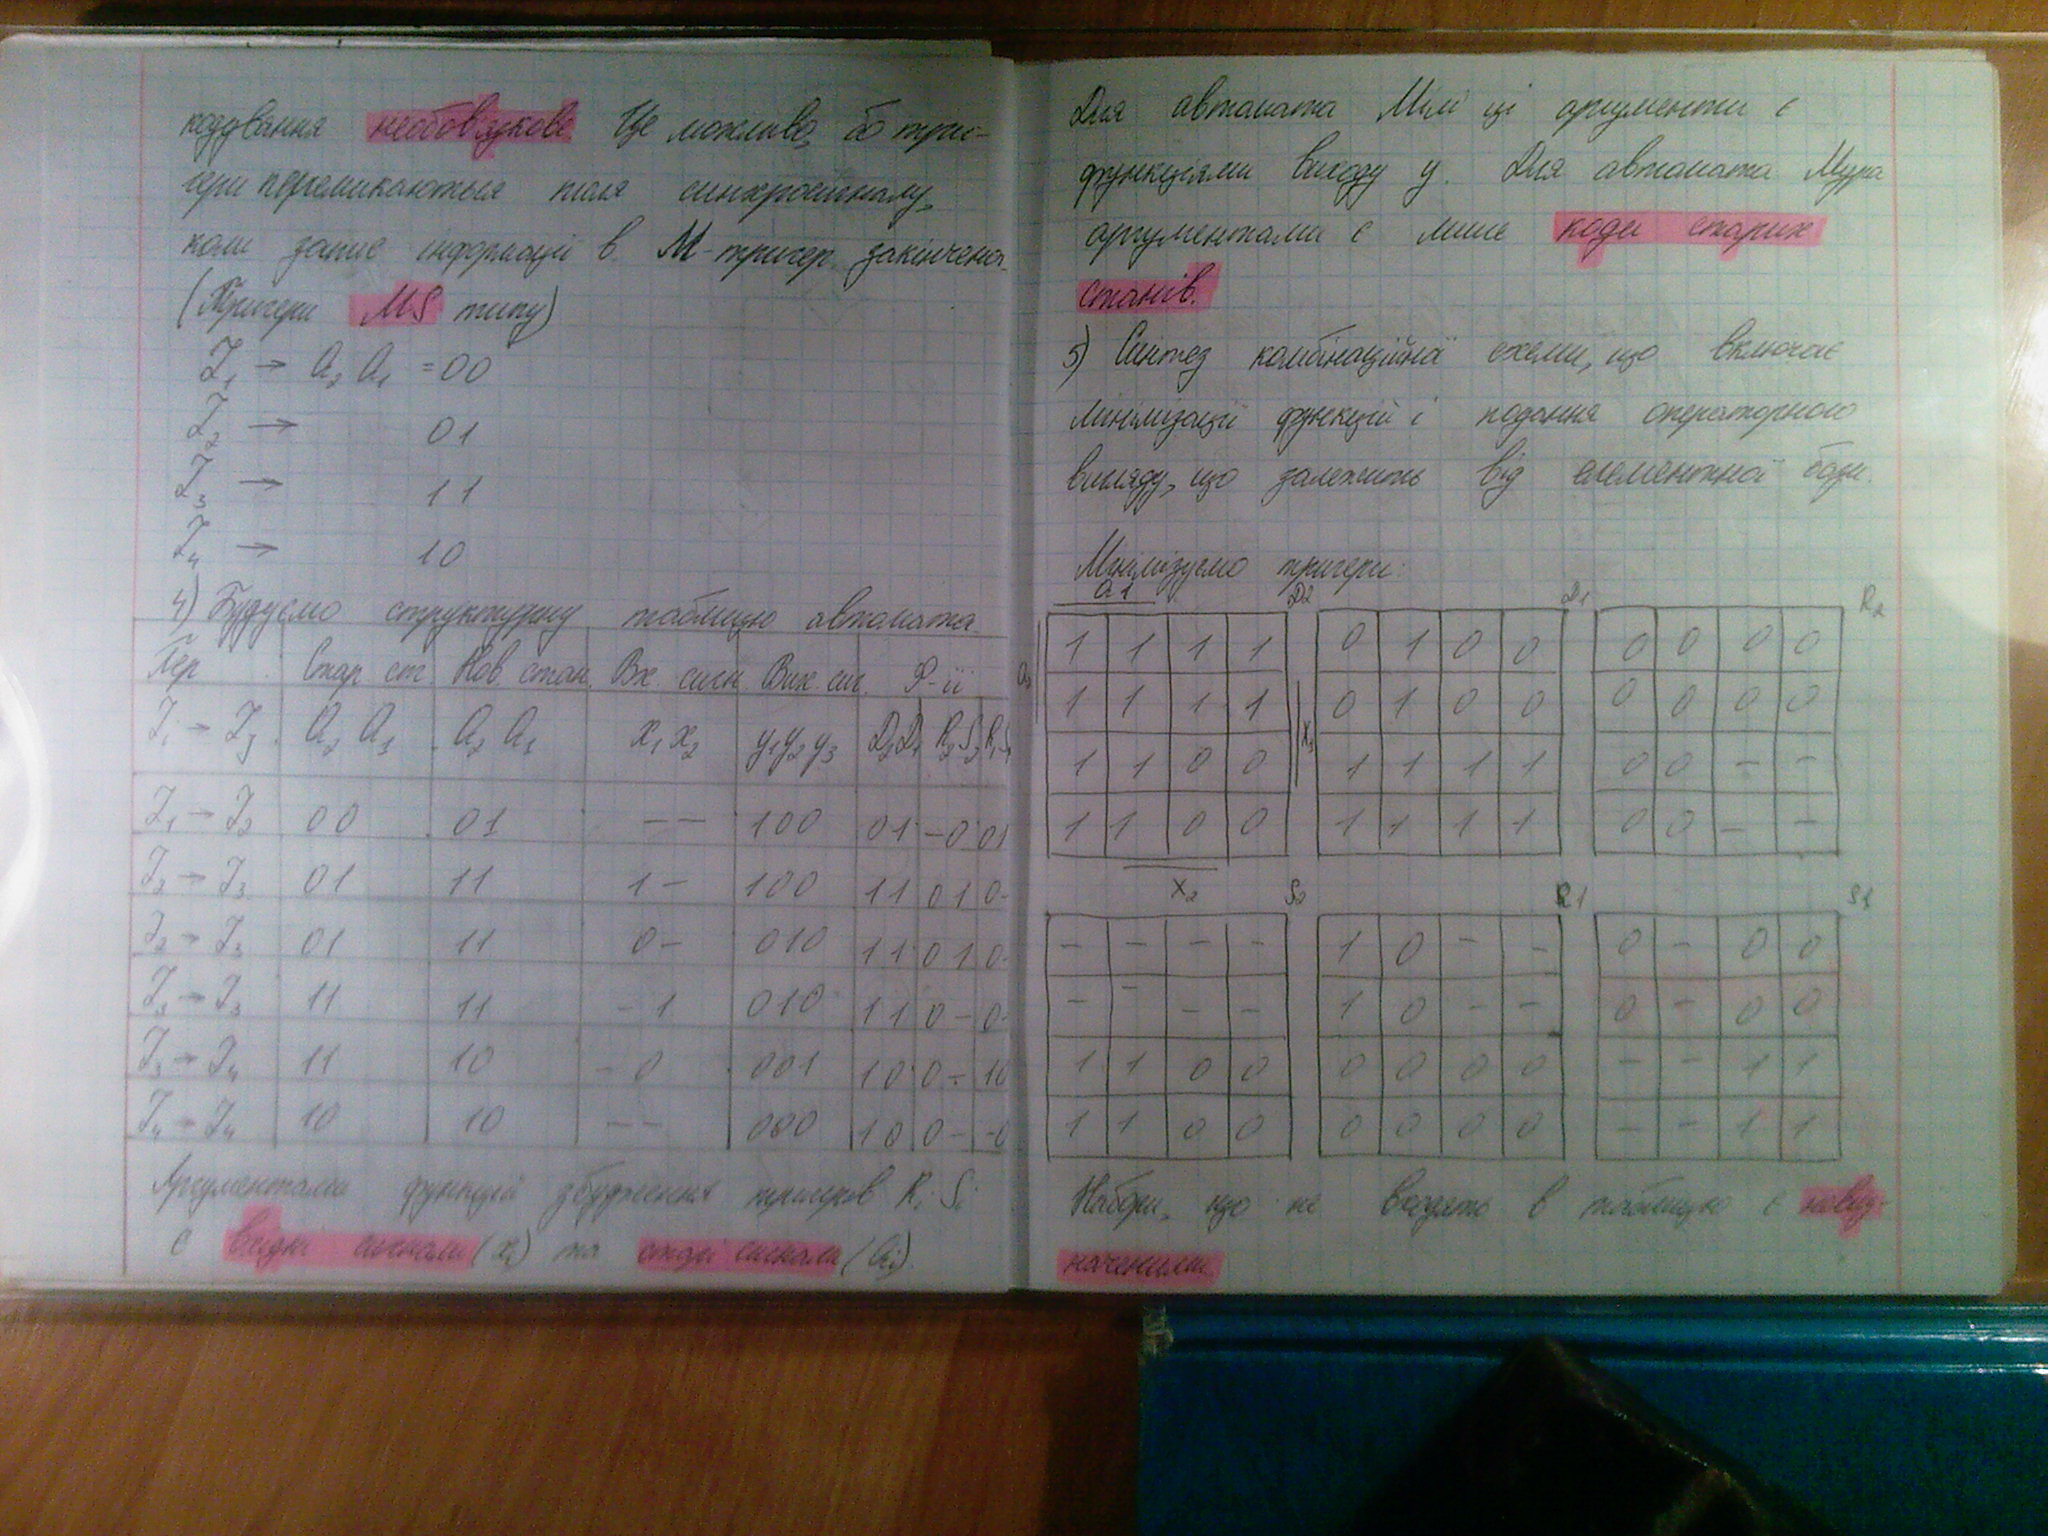 кодування необов'язкове. Це можливо, бо триг-
гери перемикаються після синхросигналу,
коли запис інформації в М-тригер закінчено.
(Тригери MS типу)
Z₁ → a₂ a₁ = 00
Z₂ → 01
Z₃ → 11
Z₄ → 10
4) Будуємо структурну таблицю автомата
Пер Стар ст Нов стан. Вх. сигн. Вих. сиг. Ф-ії
Zᵢ → Zⱼ a₂ a₁ a₂ a₁ x₁ x₂ y₁y₂y₃ D₂D₁ R₂S₂ R₁S₁
Z₁ → Z₂ 00 01 -- 100 01 -0 01
Z₂ → Z₃ 01 11 1- 100 11 01 0-
Z₂ → Z₃ 01 11 0- 010 11 01 0-
Z₃ → Z₃ 11 11 -1 010 11 0- 0-
Z₃ → Z₄ 11 10 -0 001 10 0- 10
Z₄ → Z₄ 10 10 -- 000 10 0- -0
Аргументами функцій збудження тригерів Rᵢ Sᵢ
є вхідні сигнали (xᵢ) та старі сигнали (aᵢ).
Для автомата Мілі ці аргументи є
функціями виходу y. Для автомата Мура
аргументами є лише коди старих
станів.
5) Синтез комбінаційної схеми, що включає
мінімізації функцій і подання операторного
вигляду, що залежить від елементної бази.
Мінімізуємо тригери:
a1 D2 D1 R2
1 1 1 1 0 1 0 0 0 0 0 0
a2
1 1 1 1 0 1 0 0 0 0 0 0
x1
1 1 0 0 1 1 1 1 0 0 - -
1 1 0 0 1 1 1 1 0 0 - -
x₂ S2 R1 S1
- - - - 1 0 - - 0 - 0 0
- - - - 1 0 - - 0 - 0 0
1 1 0 0 0 0 0 0 - - 1 1
1 1 0 0 0 0 0 0 - - 1 1
Набори, що не входять в таблицю є невиз-
наченими.